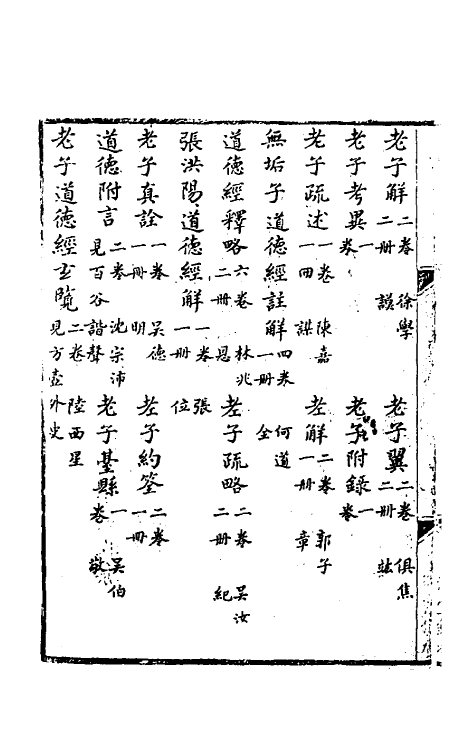 老子解二卷二冊 徐學謨 老子翼二卷二冊 俱焦竑
老子考異一卷 老子附錄一卷
老子疏述一卷一冊 陳嘉謨 老解二卷一冊 郭子章
無垢子道德經註解四卷一冊 何道全
道德經釋略六卷二冊 林兆恩 老子疏略二卷二冊 吳汝紀
張洪陽道德經解一卷一冊 張位
老子真詮一卷一冊 吳德明 老子約筌二卷一冊
道德附言二卷 沈宗沛 見百谷諧聲 老子臺縣一卷 吳伯敬
老子道德經玄覽二卷 陸西星 見方壺外史